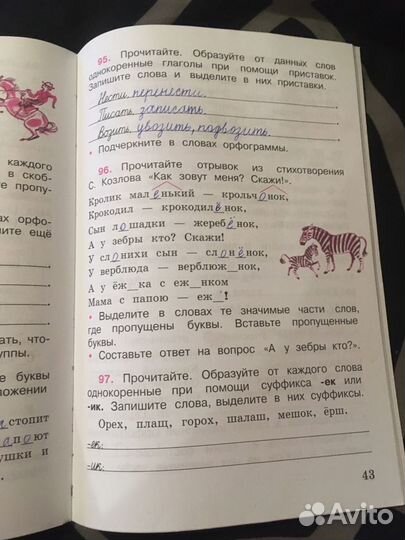 95. Прочитайте. Образуйте от данных слов
однокоренные глаголы при помощи приставок.
Запишите слова и выделите в них приставки.
Нести, перенести.
Писать, записать.
Водить, увозить, подвозить.
• Подчеркните в словах орфограммы.
96. Прочитайте отрывок из стихотворения
С. Козлова «Как зовут меня? Скажи!».
Кролик маленький — крольчонок,
Крокодил — крокодилёнок,
Сын лошадки — жеребёнок,
А у зебры кто? Скажи!
У слонихи сын — слонёнок,
У верблюда — верблюж_нок,
А у ёж_ка с еж_нком
Мама с папою — еж_!
• Выделите в словах те значимые части слов,
где пропущены буквы. Вставьте пропущенные
буквы.
• Составьте ответ на вопрос «А у зебры кто?».
97. Прочитайте. Образуйте от каждого слова
однокоренные при помощи суффикса -ек или
-ик. Запишите слова, выделите в них суффиксы.
Орех, плащ, горох, шалаш, мешок, ёрш.
-ек:
-ик:
43
каждого
в скоб-
пропу-
х орфо-
ишите ещё
ать, что-
уппы.
е буквы
ложении
стопит
апоют
ушки и
Avito